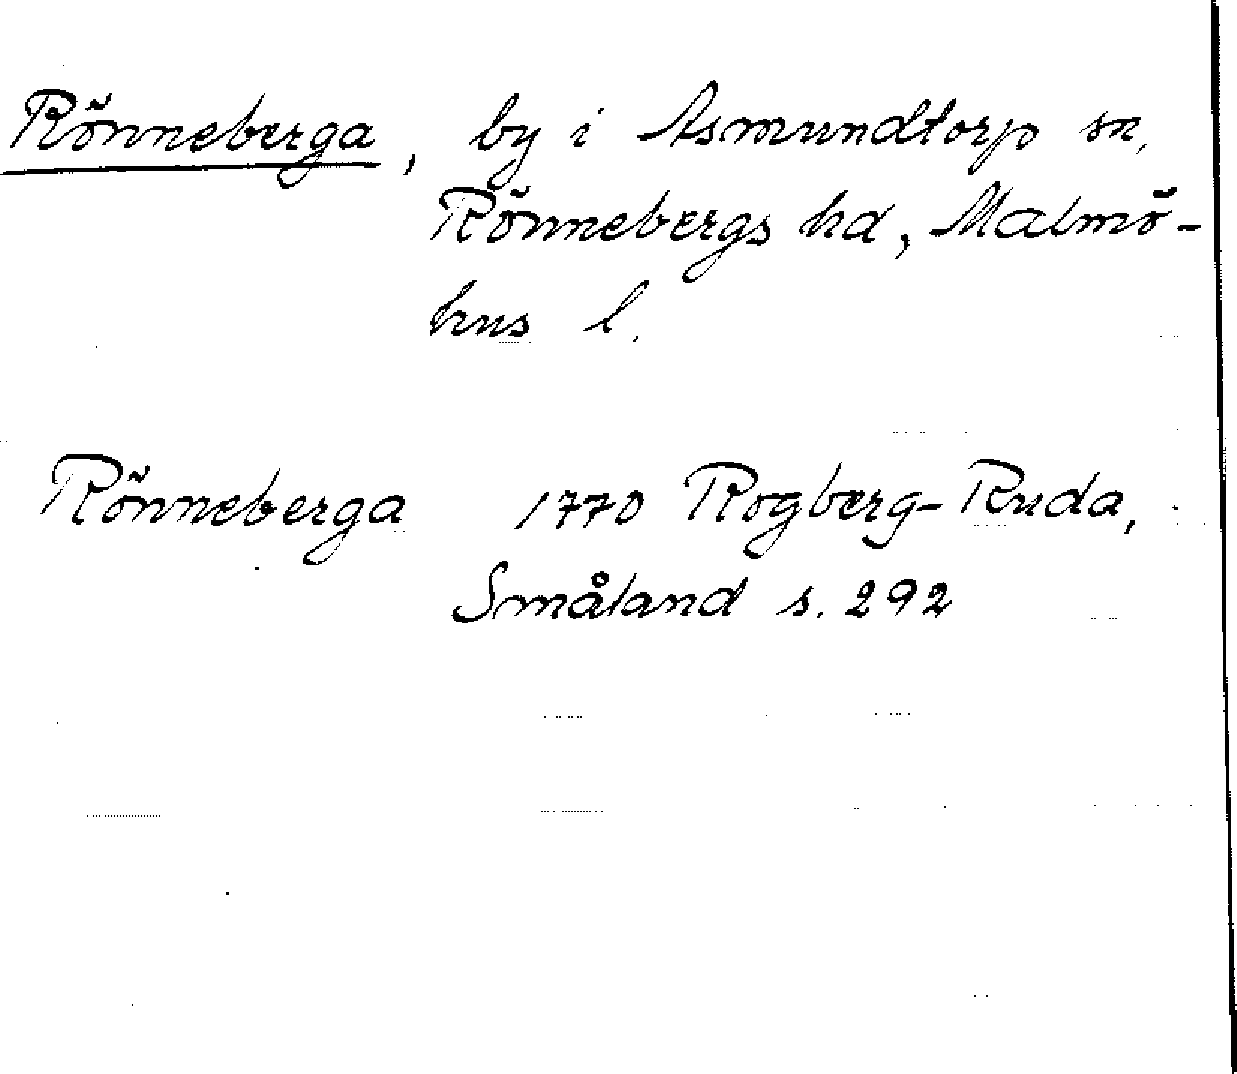 Rönneberga, by i Asmundtorp sn,
Rönnebergs hd, Malmö-
hus l.
Rönneberga 1770 Rogberg-Ruda,
Småland s. 292